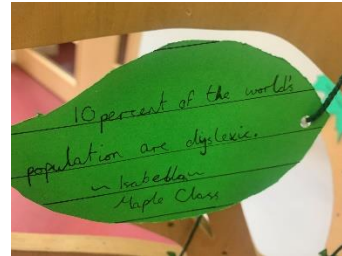 10 percent of the world's
population are dyslexic.
~ Isabella ~
Maple Class